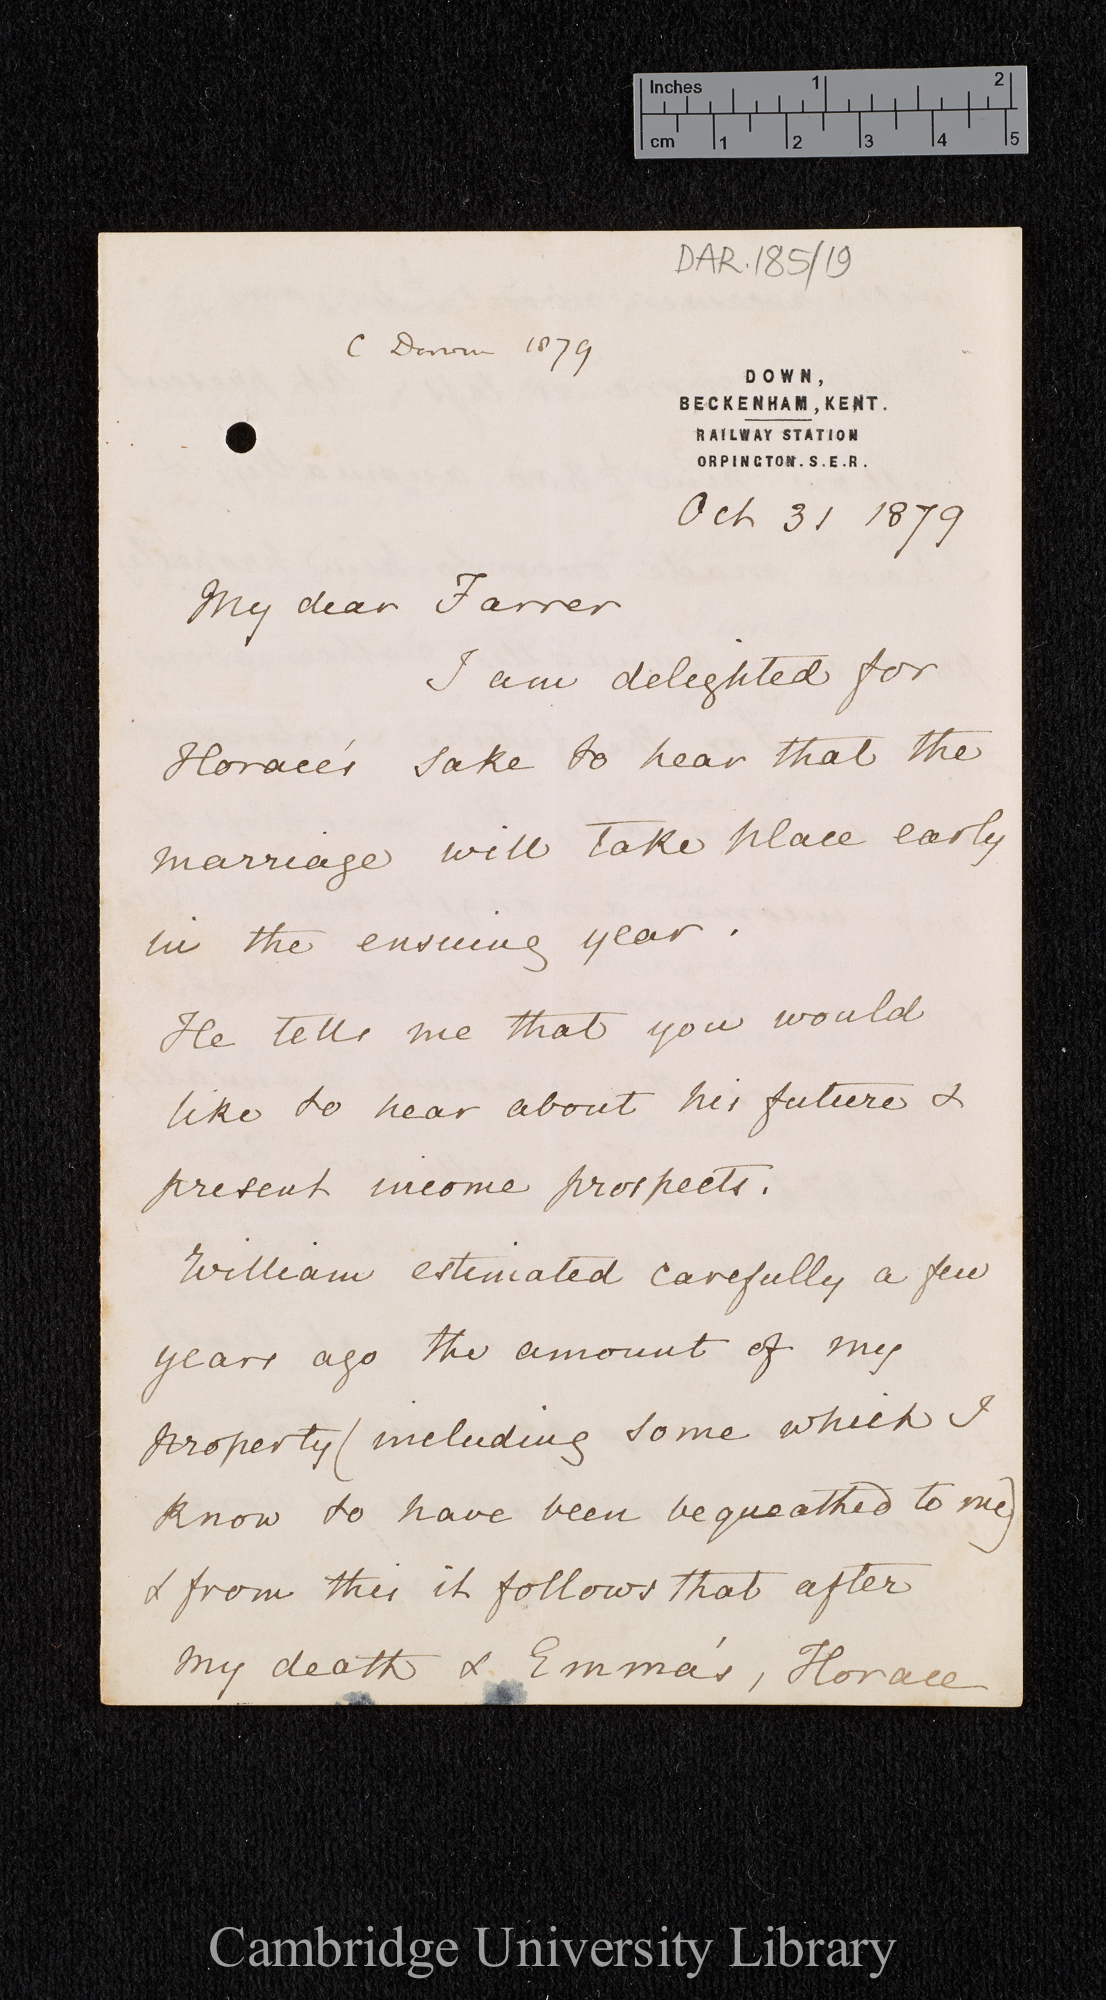 Inches 1 2
cm 1 2 3 4 5
DAR.185/19
C Darwin 1879
DOWN,
BECKENHAM, KENT.
RAILWAY STATION
ORPINGTON. S.E.R.
Oct 31 1879
My dear Farrer
I am delighted for
Horace's sake to hear that the
marriage will take place early
in the ensuing year.
He tells me that you would
like to hear about his future &
present income prospects.
William estimated carefully a few
years ago the amount of my
property (including some which I
know to have been bequeathed to me)
& from this it follows that after
my death & Emma's, Horace
Cambridge University Library